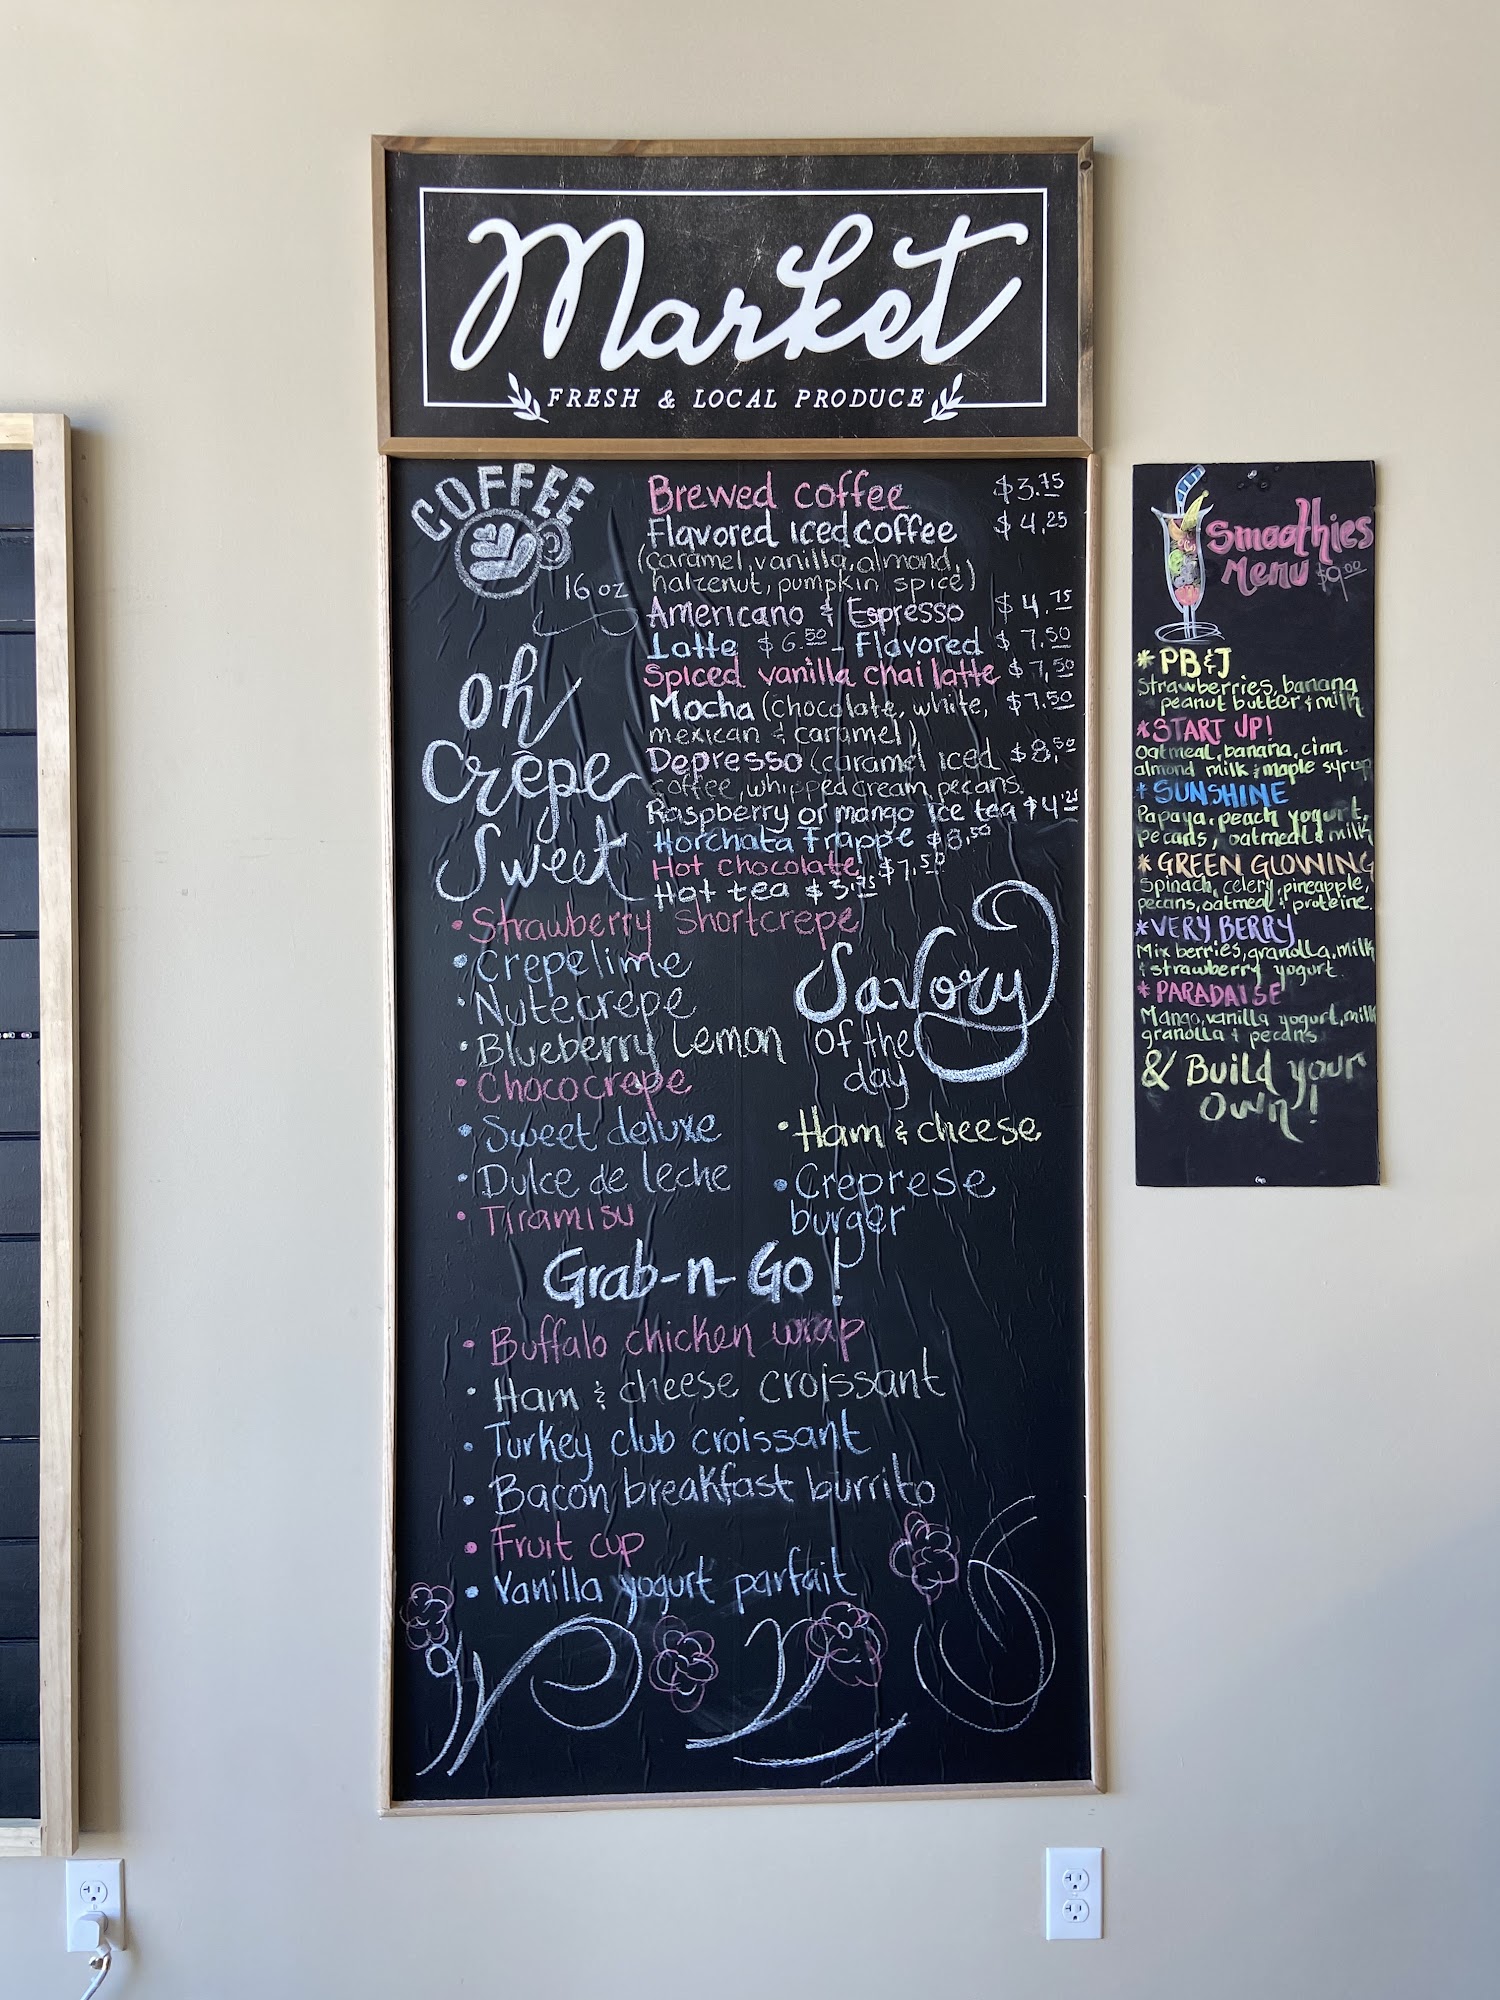 Market
FRESH & LOCAL PRODUCE
COFFEE
16 oz
Brewed coffee $3.75
Flavored iced coffee $4.25
(caramel, vanilla, almond,
halzenut, pumpkin spice)
Americano & Espresso $4.75
Latte $6.50 - Flavored $7.50
Spiced vanilla chai latte $7.50
Mocha (chocolate, white, $7.50
mexican & caramel)
Depresso (caramel iced $8.50
coffee, whipped cream, pecans.
Raspberry or mango ice tea $4.25
Horchata Frappe $8.50
Hot chocolate $7.50
Hot tea $3.75
Oh
Crêpe
Sweet
• Strawberry shortcrepe
• Crepelime
• Nutecrepe
• Blueberry Lemon
• Chococrepe
• Sweet deluxe
• Dulce de leche
• Tiramisu
Savory
of the
day
• Ham & cheese
• Creprese
burger
Grab-n-Go!
• Buffalo chicken wrap
• Ham & cheese croissant
• Turkey club croissant
• Bacon breakfast burrito
• Fruit cup
• Vanilla yogurt parfait
Smoothies
Menu $9.00
* PB&J
Strawberries, banana
peanut butter & milk
* START UP!
Oatmeal, banana, cinn.
almond milk & maple syrup
* SUNSHINE
Papaya, peach yogurt,
pecans, oatmeal & milk
* GREEN GLOWING
Spinach, celery, pineapple,
pecans, oatmeal & proteine.
* VERY BERRY
Mix berries, granolla, milk
& strawberry yogurt.
* PARADAISE
Mango, vanilla yogurt, milk
granolla & pecans
& Build your
own!